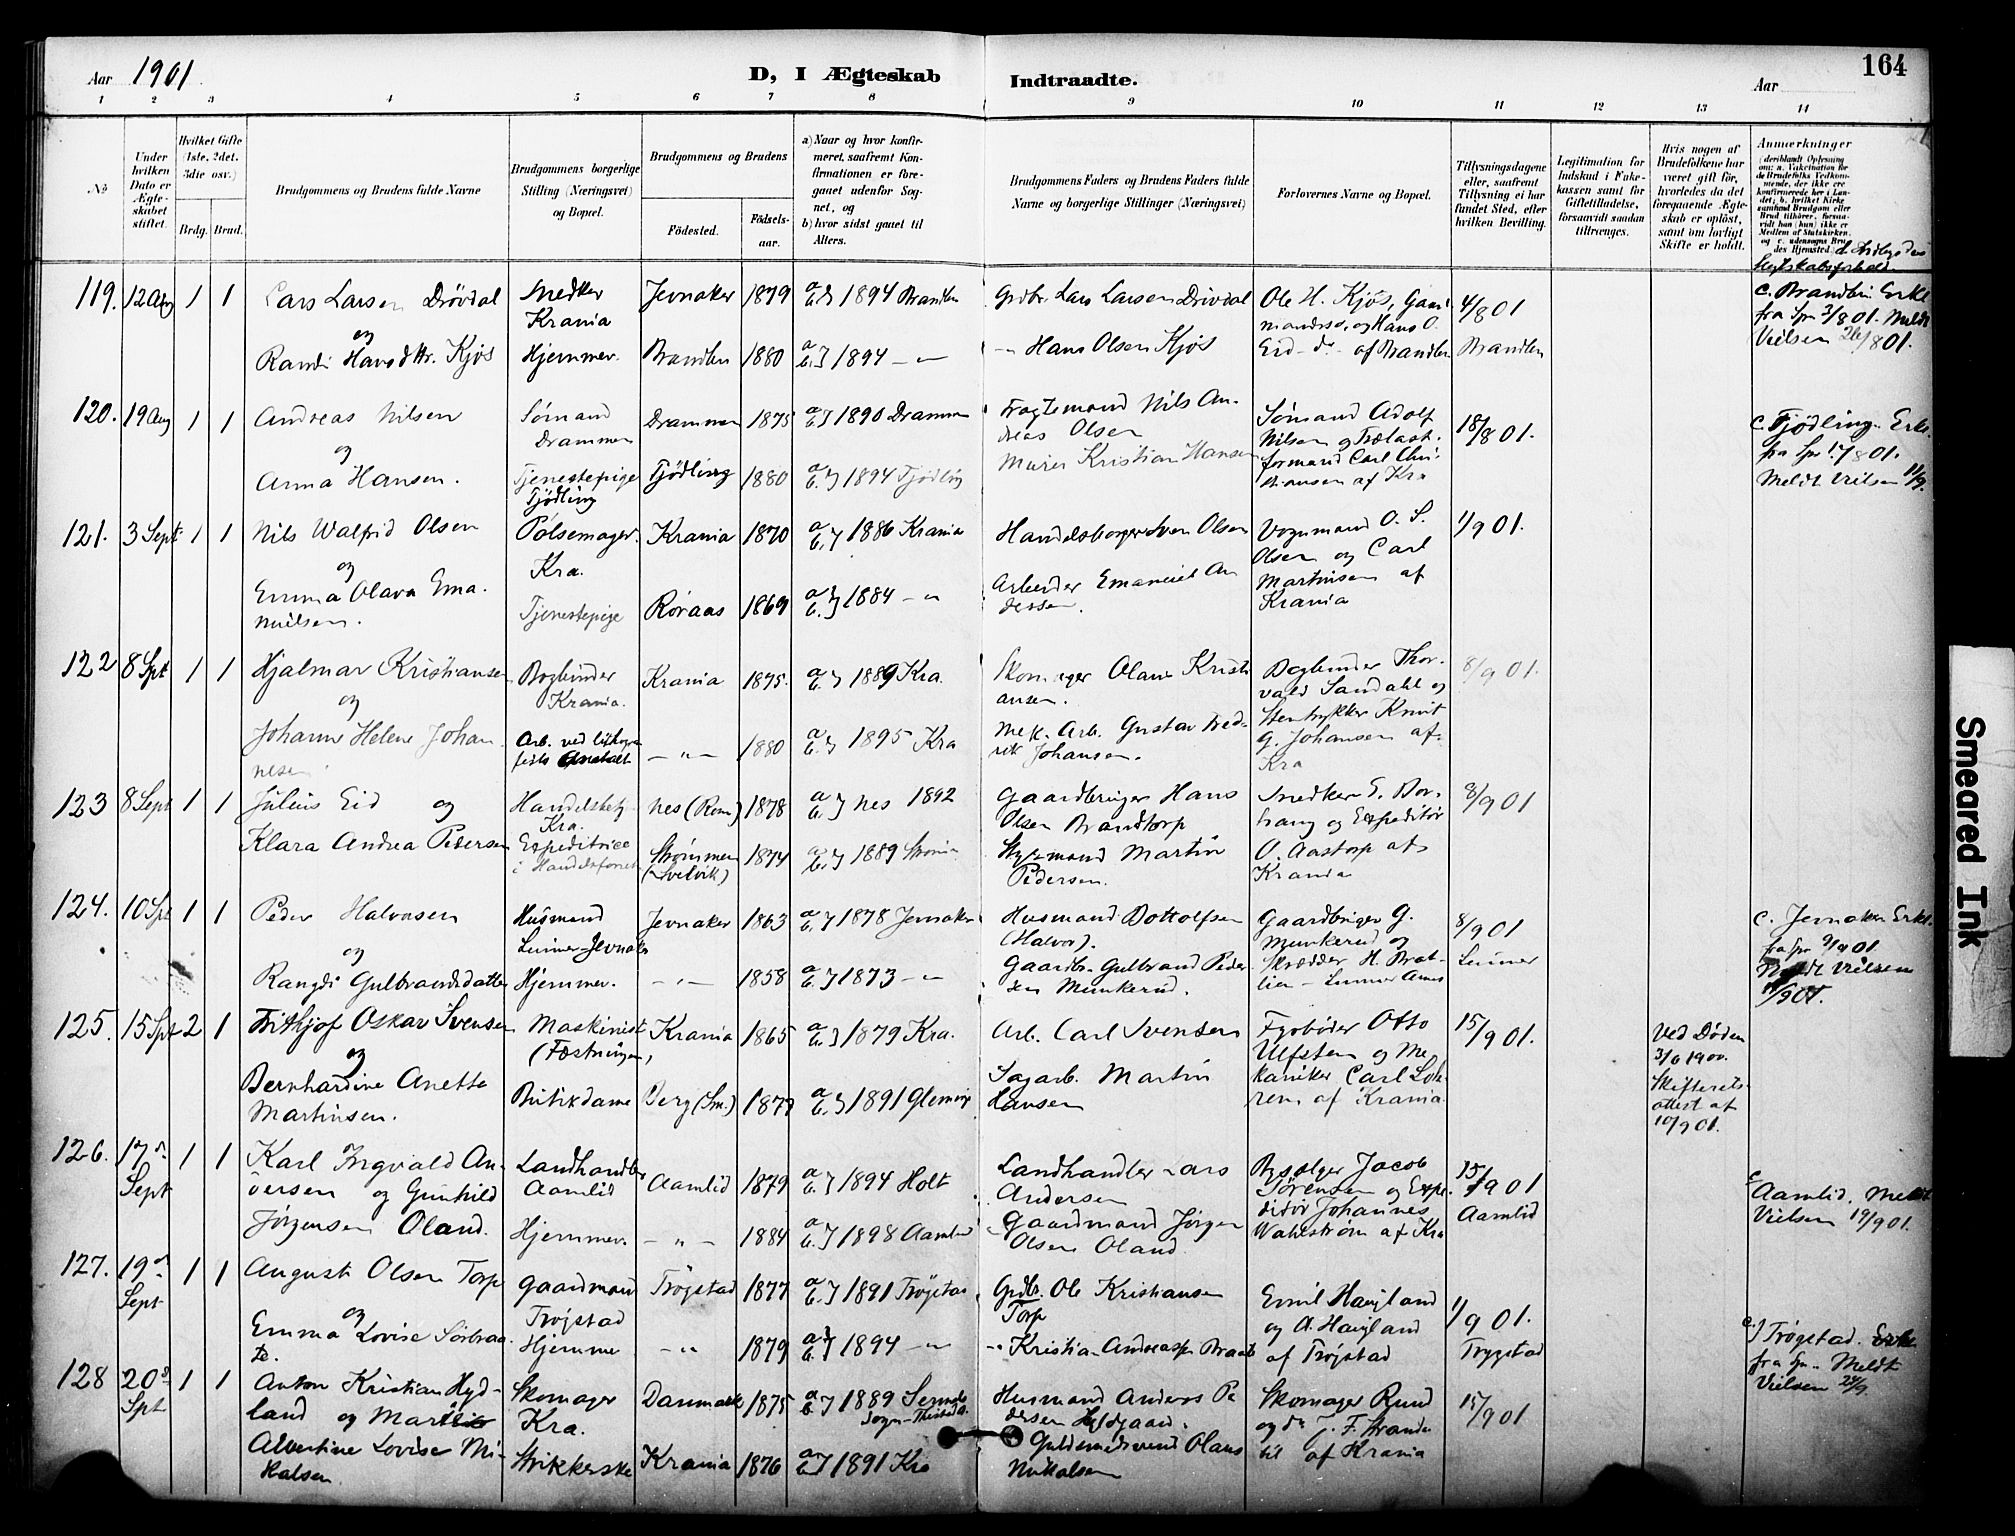 164
Aar 1901
D, I Ægteskab Indtraadte.
Aar
1 2 3 4 5 6 7 8 9 10 11 12 13 14
No
Under hvilken Dato er Ægteskabet stiftet.
Hvilket Gifte (1ste, 2det, 3die osv.)
Brdg. Brud.
Brudgommens og Brudens fulde Navne
Brudgommens borgerlige Stilling (Næringsvei) og Bopæl.
Brudgommens og Brudens
Fødested.
Fødselsaar.
a) Naar og hvor konfirmeret, saafremt Konfirmationen er foregaaet udenfor Sognet, og
b) hvor sidst gaaet til Alters.
Brudgommens Faders og Brudens Faders fulde Navne og borgerlige Stillinger (Næringsvei)
Forlovernes Navne og Bopæl.
Tillysningsdagene eller, saafremt Tillysning ei har fundet Sted, efter hvilken Bevilling.
Legitimation for Indskud i Enkekassen samt for Giftetilladelse, forsaavidt saadan tiltrænges.
Hvis nogen af Brudefolkene har været gift før, hvorledes da det foregaaende Ægteskab er opløst, samt om lovligt Skifte er holdt.
Anmærkninger
119. 12 Aug 1 1 Lars Larsen Drövdal
og
Randi Hansdttr. Kjös
Snedker
Krania
Hjemmev.
Jevnaker 1879 1894 Brandbu
Brandbu 1880 1894 — " —
Grdbr. Lars Larsen Drövdal
— Hans Olsen Kjös
Ole H. Kjös,
og Hans O.
Eid — af Brandbu
4/8 01
Brandbu
c. Brandbu Erkl.
fra Spr 3/8 01. Meldt
Vielsen 26/8 01.
120. 19 Aug 1 1 Andreas Nilsen
og
Anna Hansen.
Sömand
Drammen
Tjenestepige
Tjödling
Drammen 1875 1890 Drammen
Tjödling 1880 1894 Tjödling
Fragtemand Nils An-
dreas Olsen
Murer Kristian Hansen
Sömand Adolf
Nilsen og Trælast-
formand Carl Chri-
stiansen af Kra
18/8 01.
c. Tjödling. Erkl.
fra Spr 17/8 01.
Meldt Vielsen 11/9.
121. 3 Sept 1 1 Nils Walfrid Olsen
og
Emma Olava Ema-
nuelsen.
Pölsemager.
Kra.
Tjenestepige
Krania 1870 1886 Krania
Röraas 1869 1884 — " —
Handelsborger Sven Olsen
Arbeider Emanuel An
dersen.
Vognmand O. S.
Olsen og Carl
Martinsen af
Krania
1/9 01.
122 8 Spt 1 1 Hjalmar Kristiansen
og
Johanne Helene Johan
nesen.
Bogbinder
Krania.
Arb. ved
Anstalt
Krania 1875. 1889 Kra.
— " — 1880 1895 Kra
Skomager Olaus Kristi
ansen.
Mek. Arb. Gustav Fred-
rik Johansen.
Bogbinder Thor-
vald Sandahl og
Stentrykker Knut
G. Johansen af
Kra
8/9 01.
123 8 Sept 1 1 Julius Eid og
Klara Andrea Pedersen
Handelsbetj.
Kra.
Expeditrice
i Handelsforret
Nes (Rom) 1878 Nes 1892
Strömmen
(Svelvik) 1874 1889
Gaardbruger Hans
Olsen Brandtorp
Styrmand Martin
Pedersen.
Snedker E. Bor-
haug og Expeditör
O. Aastorp af
Krania
8/9 01
124. 10 Spt 1 1 Peder Halvorsen
og
Rangdi Gulbrandsdatter
Husmand
Lunner-Jevnaker
Hjemmev.
Jevnaker 1863 1878 Jevnaker
— " — 1858 1873 — " —
Husmand Bottolfsen
(Halvor).
Gaardbr. Gulbrand Peder
sen Munkerud.
Gaardbruger G.
Munkerud og
Skrædder H. Brat-
lien — Lunner Annex
8/9 01
Lunner
c. Jevnaker Erkl.
fra Spr 9/9 01.
Meldt Vielsen
11/9 01.
125. 15 Spt 2 1 Frithjof Oskar Svensen
og
Bernhardine Anette
Martinsen.
Maskinist
(Fæstningen,
Butikdame
Krania 1865 1879 Kra.
Berg (Sm.) 1877 1891 Gleminge
Arb. Carl Svensen
Sagarb. Martin
Hansen
Fyrböder Otto
Ulfsten og Me
kaniker Carl Loh-
ren, af Krania
15/9 01.
Ved Döden
3/6 1900.
Skifterets-
attest af
10/9 01.
126. 17de
Sept 1 1 Karl Ingvald An-
dersen og Gunhild
Jörgensen Oland.
Landhandler
Aamlid
Hjemmev.
Aamlid 1879 1894 Holt
— " — 1884 1898 Aamlid
Landhandler Lars
Andersen
Gaardmand Jörgen
Olsen Oland.
Bysælger Jacob
Sörensen og Expe-
ditör Johannes
Wahlström af Kra
15/9 01
Aamlid
c.
Aamlid. Meldt
Vielsen 19/9 01.
127. 19de
Sept 1 1 August Olsen Torp
og
Emma Lovise Sörbraa
te.
Gaardmand
Tröjstad
Hjemme
Trögstad 1877 1891 Trögstad
— " — 1879 1894 — " —
Grdbr. Ole Kristiansen
Torp
— Kristian Andreasen Braate
Emil Haugland
og A. Haugland
af Tröjstad
1/9 01.
Trygstad
c.) Trøgstad. Erkl.
fra Spr. Meldt
Vielsen 24/9.
128 20de
Spt 1 1 Anton Kristian Hyd-
land og
Alvertine Lovise Mi-
kalsen
Skomager
Kra.
Strikkerske
Danmark 1875 1889
Krania 1876 1891 Kra
Husmand Anders Pe
dersen
Guldsmedsvend Olaus
Mikalsen
Skomager Rund
og do J. F. Strande
til af Krania
15/9 01
Smeared Ink